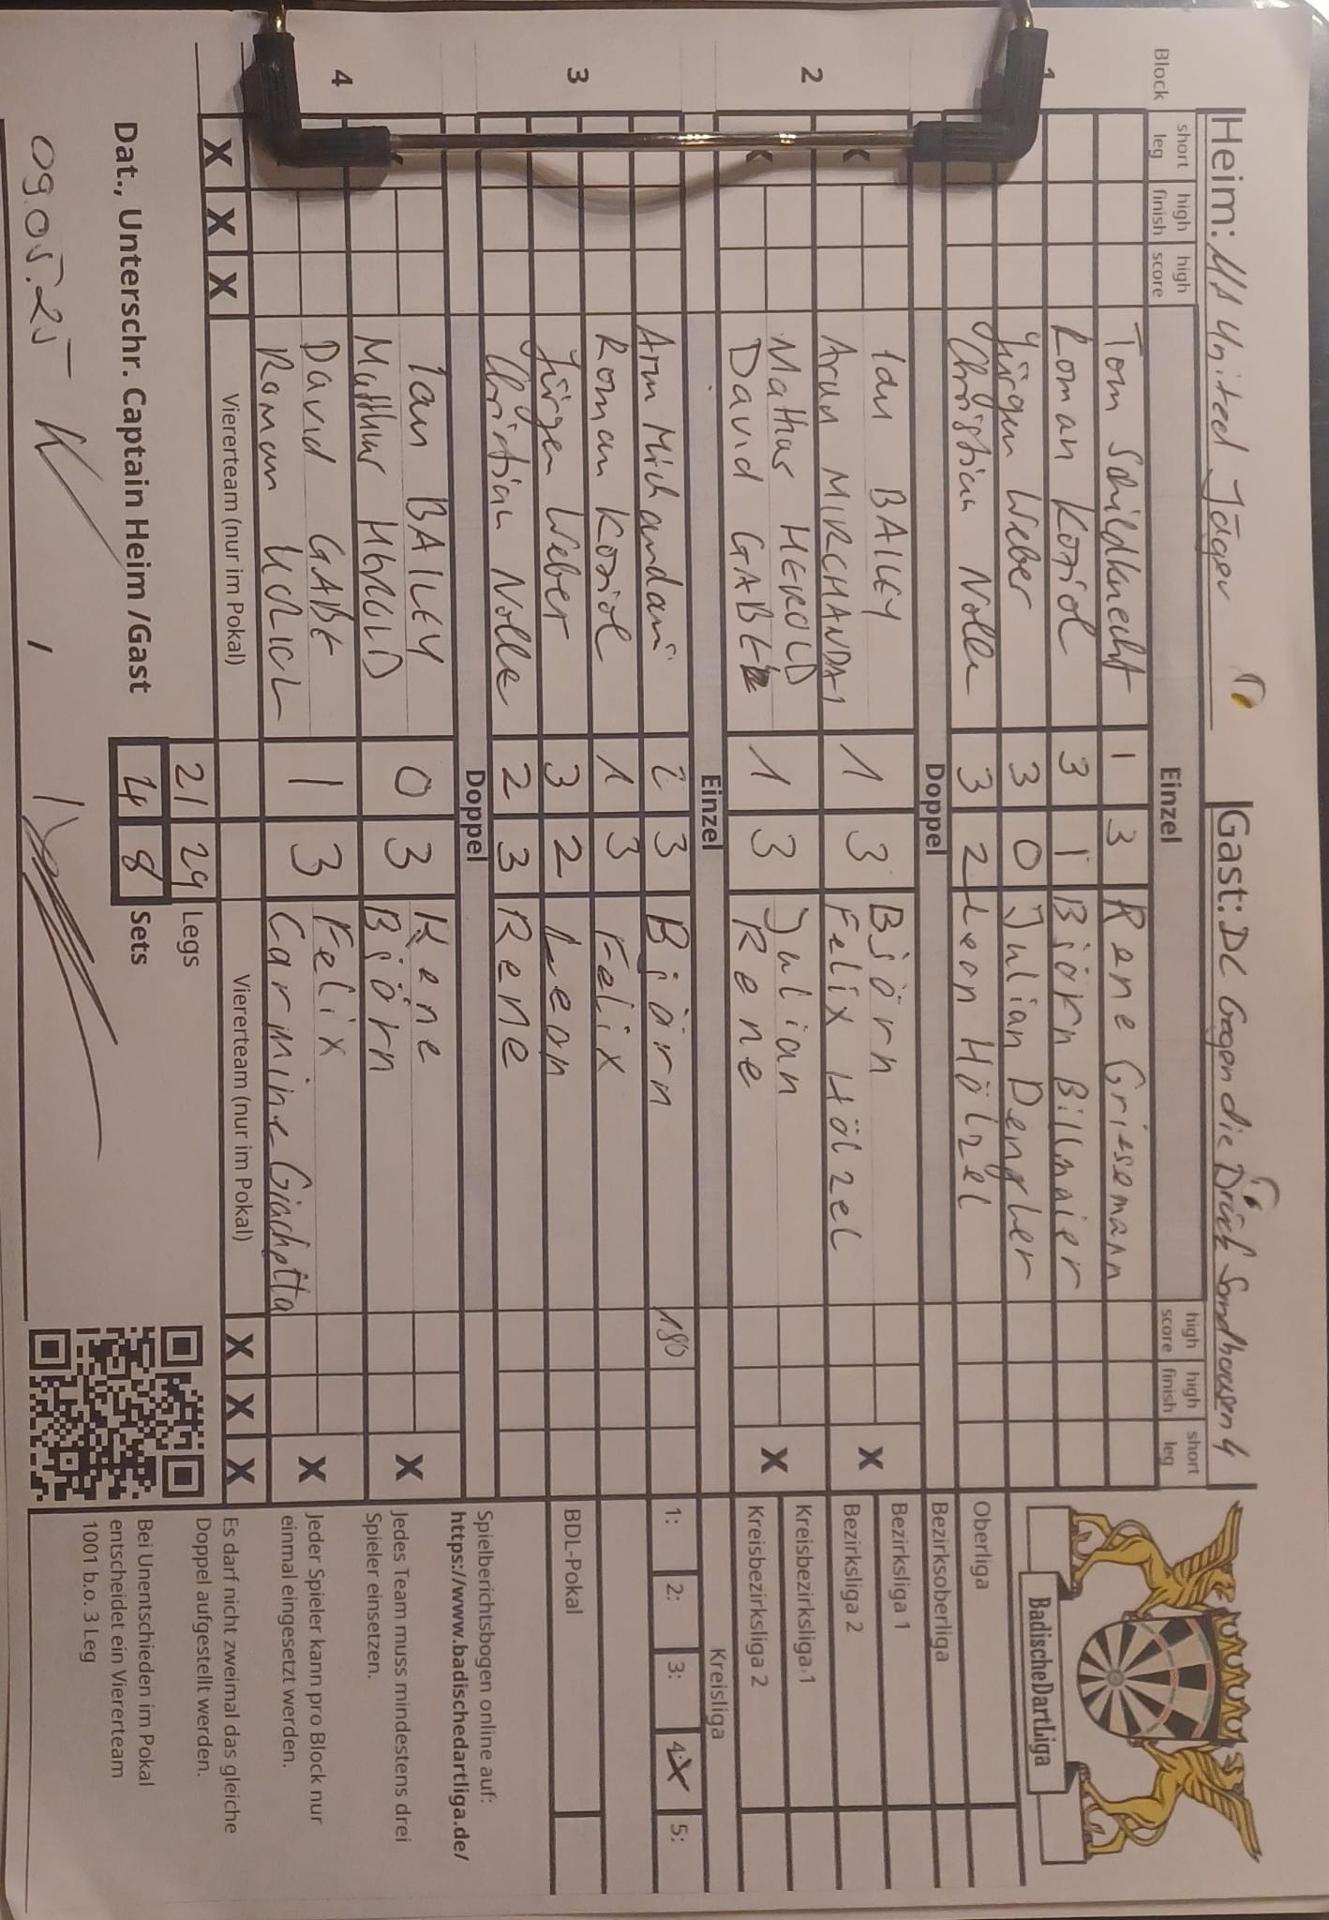 Heim: MA United Jäger
Gast: DC Gegen die Drück Sandhausen 4
Block
short leg
high finish
high score
Einzel
high score
high finish
short leg
1
Tom Schildknecht 1 3 Rene Griesemann
Roman Koziol 3 1 Björn Billmaier
Jürgen Weber 3 0 Julian Dengler
Christian Nolle 3 2 Leon Hölzel
Doppel
2
X Ian BAILEY 1 3 Björn X
Arun MIRCHANDANI Felix Hölzel
X Mathus HEROLD 1 3 Julian X
David GABEL Rene
Einzel
3
Arun Mirchandani 2 3 Björn 180
Roman Koziol 1 3 Felix
Jürgen Weber 3 2 Leon
Christian Nolle 2 3 Rene
Doppel
4
Ian BAILEY 0 3 Rene X
Matthus HEROLD Björn
David GABE 1 3 Felix X
Roman Carmine
X X X Viererteam (nur im Pokal) Viererteam (nur im Pokal) X X X
21 29 Legs
4 8 Sets
Dat., Unterschr. Captain Heim /Gast
09.05.25
BadischeDartLiga
Oberliga
Bezirksoberliga
Bezirksliga 1
Bezirksliga 2
Kreisbezirksliga 1
Kreisbezirksliga 2
Kreisliga
1: 2: 3: 4: X 5:
BDL-Pokal
Spielberichtsbogen online auf:
https://www.badischedartliga.de/
Jedes Team muss mindestens drei
Spieler einsetzen.
Jeder Spieler kann pro Block nur
einmal eingesetzt werden.
Es darf nicht zweimal das gleiche
Doppel aufgestellt werden.
Bei Unentschieden im Pokal
entscheidet ein Viererteam
1001 b.o. 3 Leg